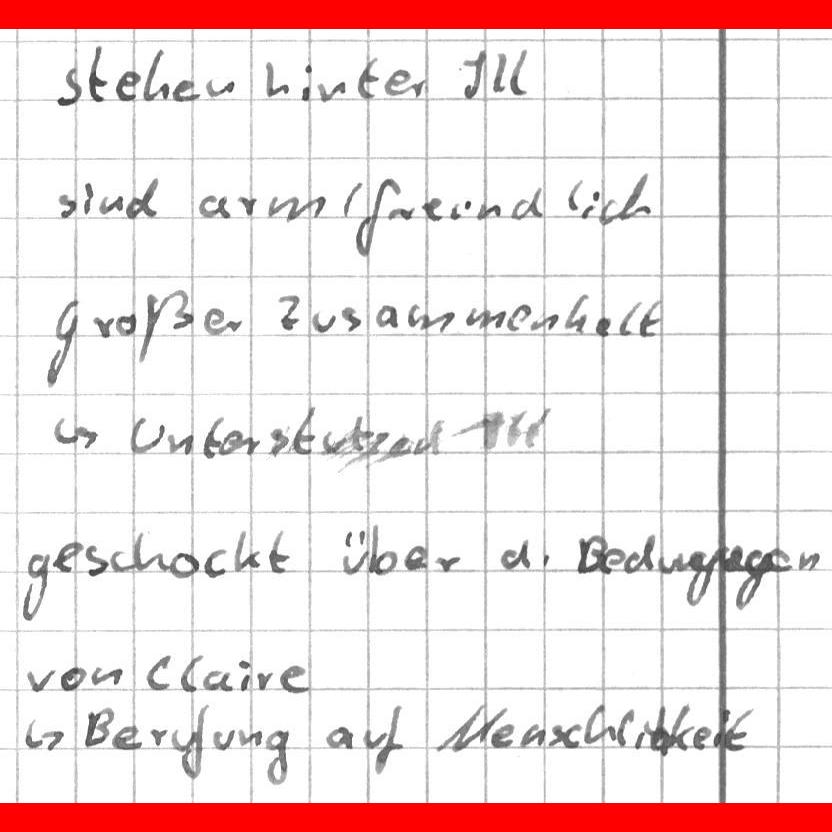 stehen hinter Ill
sind arm/freundlich
großer Zusammenhalt
↳ Unterstützen Ill
geschockt über d. Bedingungen
von Claire
↳ Berufung auf Menschlichkeit